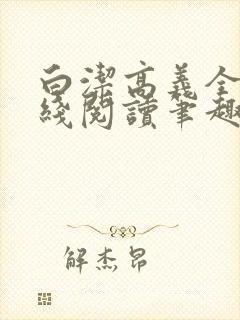 白潔高義全
綫閱讀筆趣
解杰昂